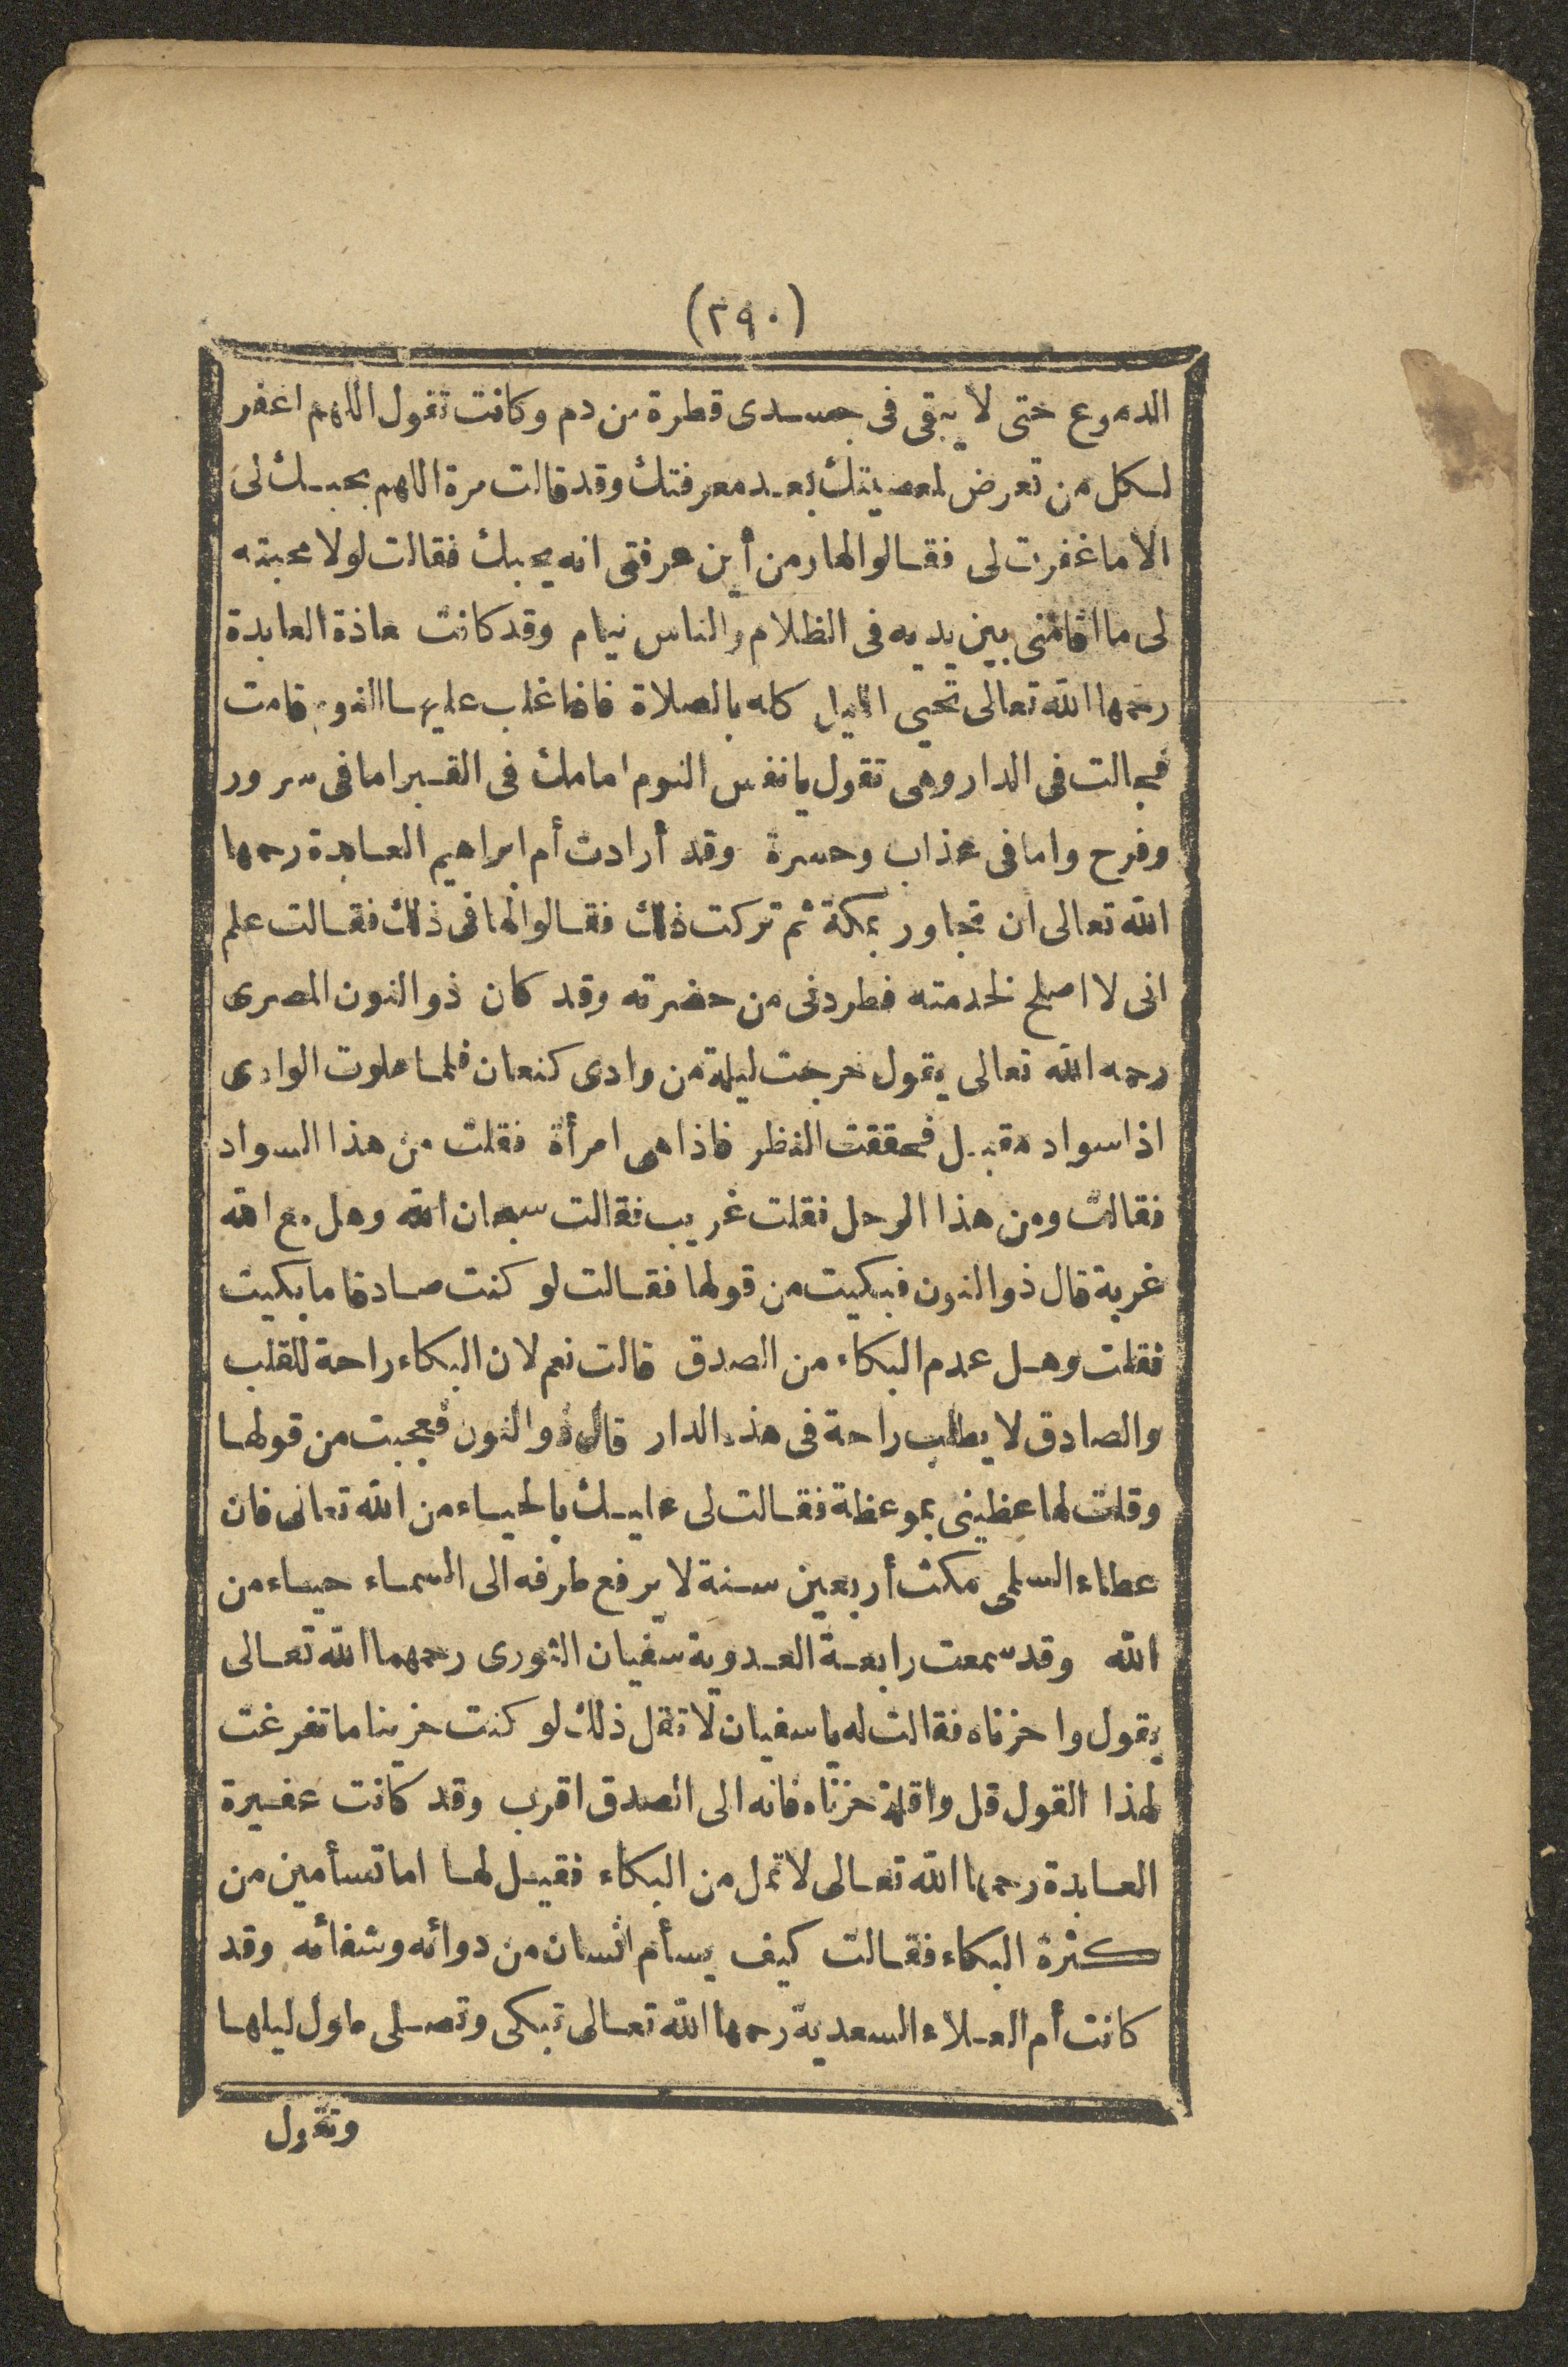 (٢٩٠)
الدموع حتى لا يبقى فى جسدى قطرة من دم وكانت تقول اللهم اغفر
لكل من تعرض لمعصيتك بعد معرفتك وقد قالت مرة اللهم بحبك لى
الا ما غفرت لى فقالوا لها ومن أين عرفتى انه يحبك فقالت لولا محبته
لى ما اقامنى بين يديه فى الظلام والناس نيام وقد كانت معاذة العابدة
رحمها الله تعالى تحيى الليل كله بالصلاة فاذا غلب عليها النوم قامت
فجالت فى الدار وهى تقول يا نفس النوم امامك فى القبر اما فى سرور
وفرح واما فى عذاب وحسرة وقد أرادت أم ابراهيم العابدة رحمها
الله تعالى ان تجاور بمكة ثم تركت ذلك فقالوا لها فى ذلك فقالت علم
انى لا اصلح لخدمته فطردنى من حضرته وقد كان ذو النون المصرى
رحمه الله تعالى يقول خرجت ليلة من وادى كنعان فلما علوت الوادى
اذا سواد مقبل فحققت النظر فاذا هى امرأة فقلت من هذا السواد
فقالت ومن هذا الرجل فقلت غريب فقالت سبحان الله وهل مع الله
غربة قال ذو النون فبكيت من قولها فقالت لو كنت صادقا ما بكيت
فقلت وهل عدم البكاء من الصدق قالت نعم لان البكاء راحة للقلب
والصادق لا يطلب راحة فى هذه الدار قال ذو النون فعجبت من قولها
وقلت لها عظينى بموعظة فقالت لى عليك بالحياء من الله تعالى فان
عطاء السلمى مكث أربعين سنة لا يرفع طرفه الى السماء حياء من
الله وقد سمعت رابعة العدوية سفيان الثورى رحمهما الله تعالى
يقول وا حزناه فقالت له يا سفيان لا تقل ذلك لو كنت حزينا ما تفرغت
لهذا القول قل وا قلة حزناه فانه الى الصدق اقرب وقد كانت عفيرة
العابدة رحمها الله تعالى لا تمل من البكاء فقيل لها اما تسأمين من
كثرة البكاء فقالت كيف يسأم انسان من دوائه وشفائه وقد
كانت أم العلاء السعدية رحمها الله تعالى تبكى وتصلى طول ليلها
وتقول